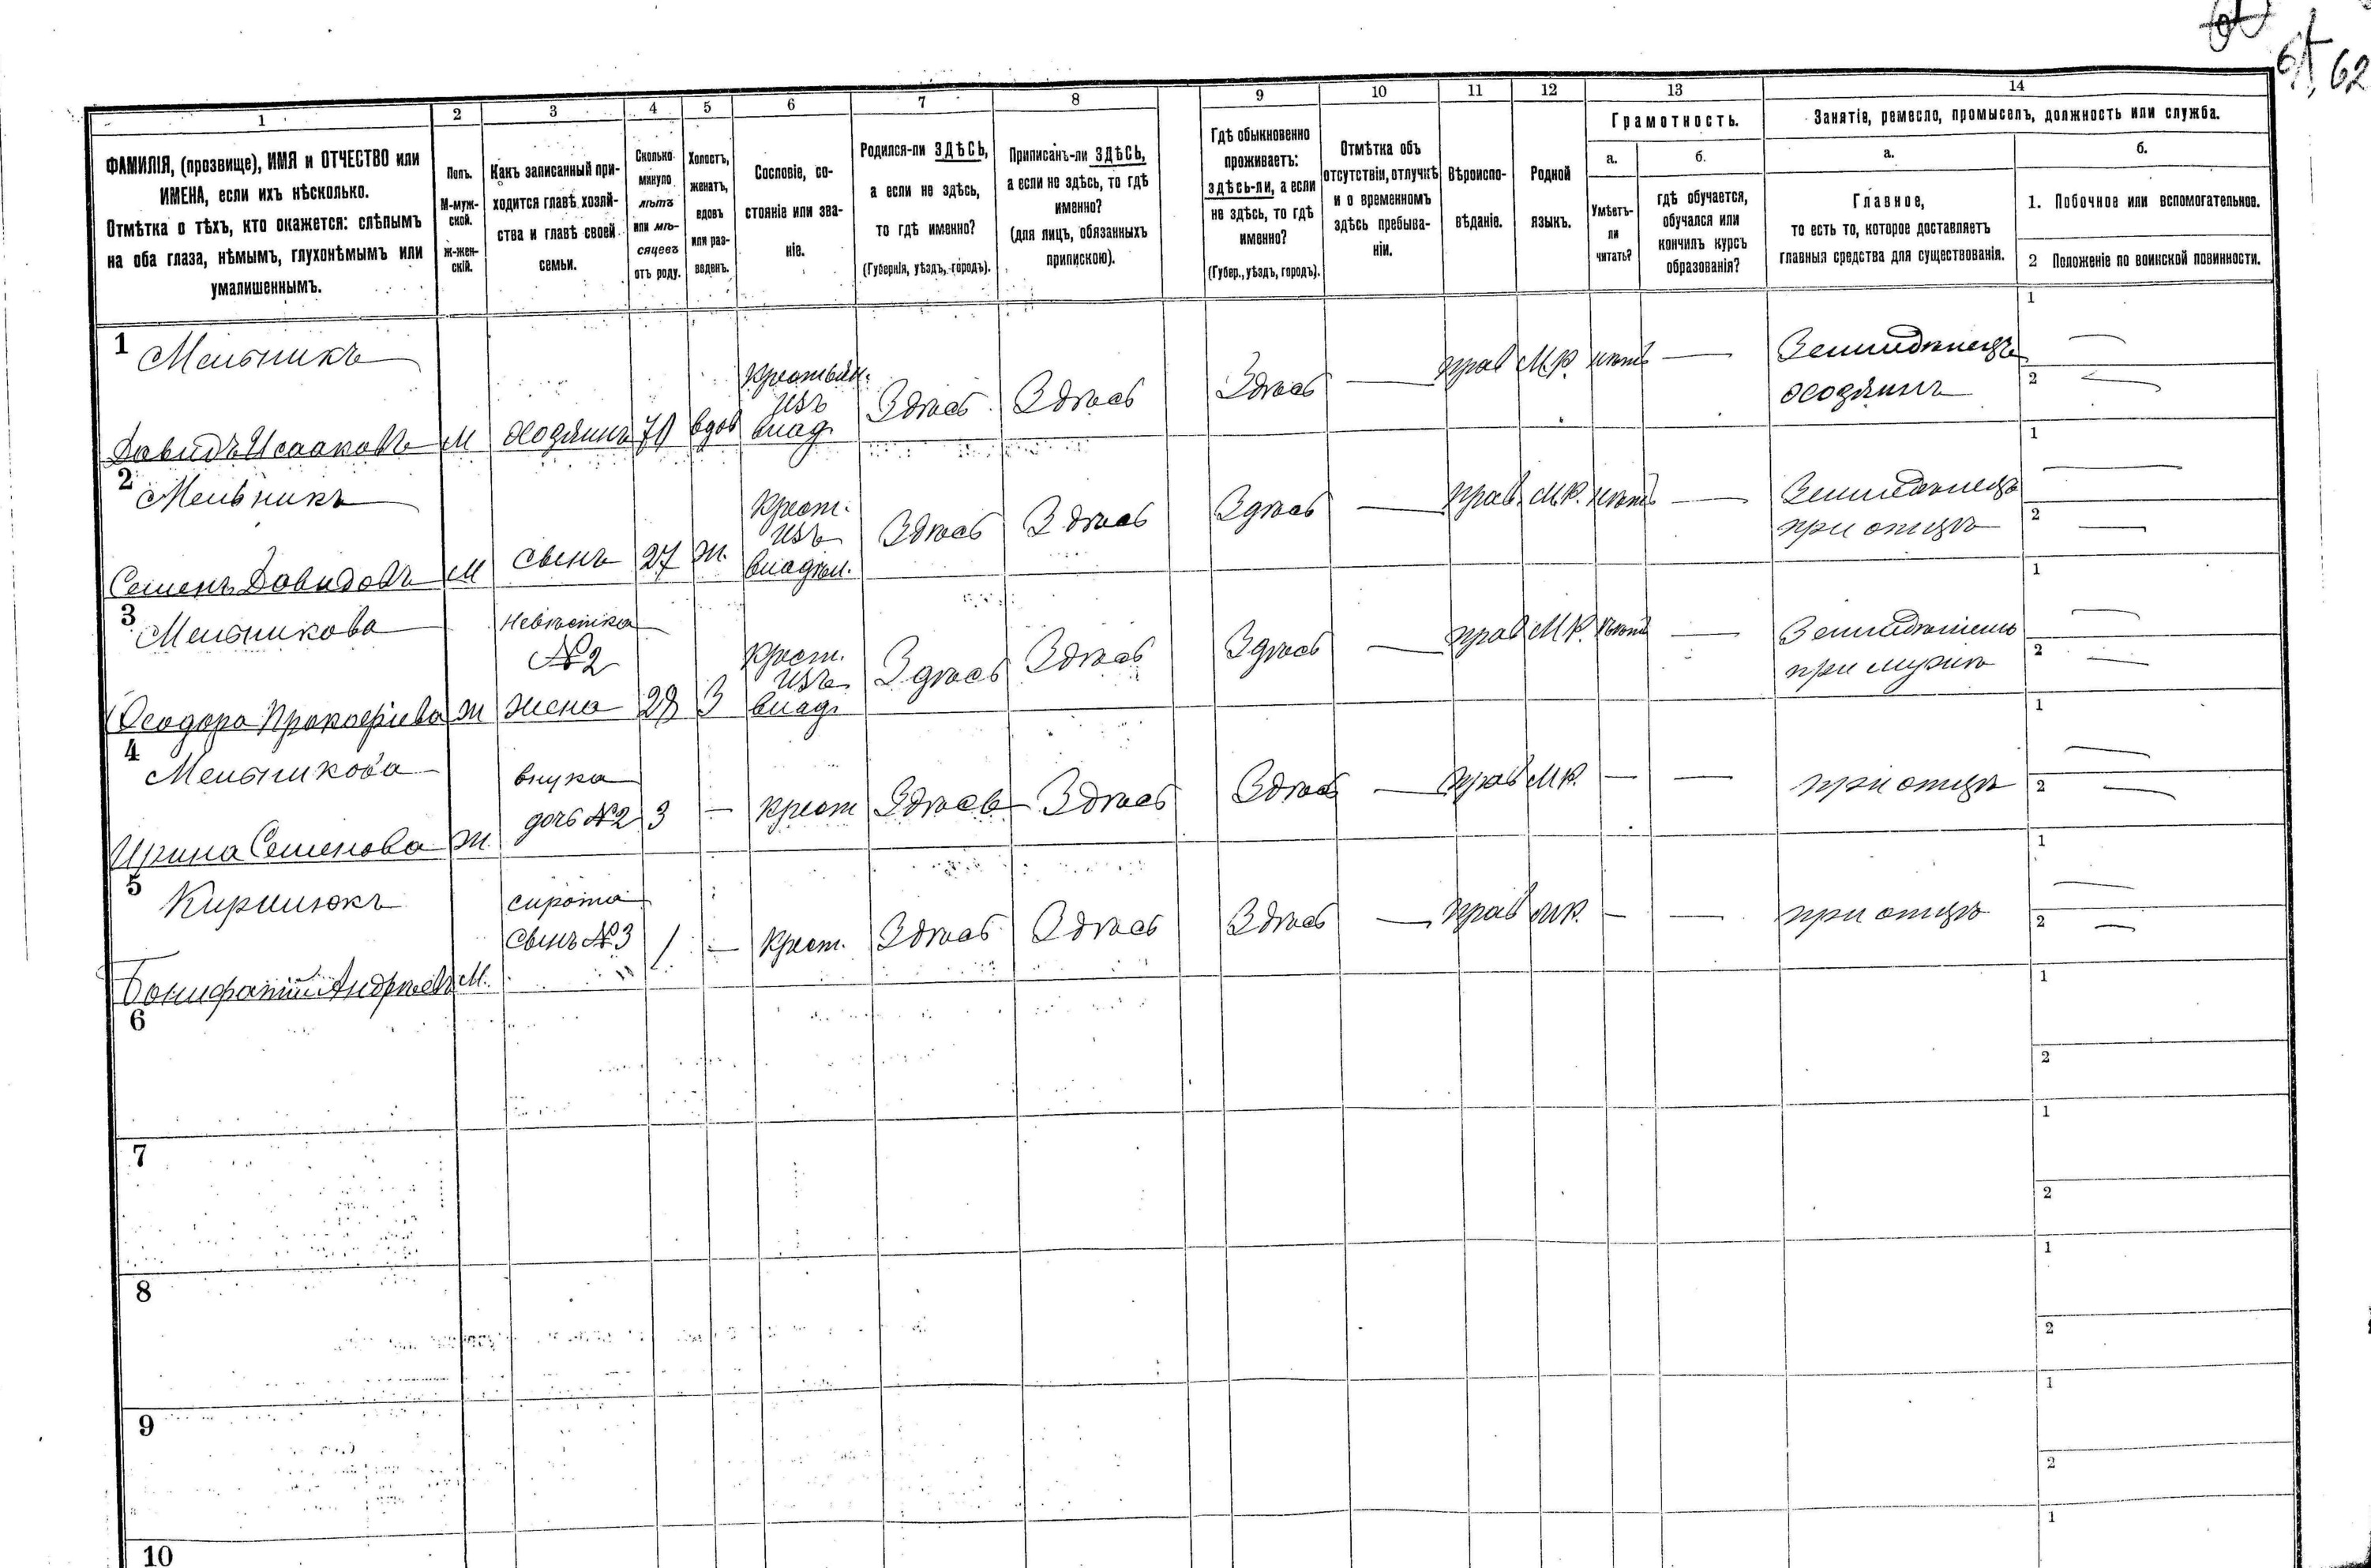 61 62
1 2 3 4 5 6 7 8 9 10 11 12 13 14
ФАМИЛІЯ, (прозвище), ИМЯ и ОТЧЕСТВО или
ИМЕНА, если ихъ нѣсколько.
Отмѣтка о тѣхъ, кто окажется: слѣпымъ
на оба глаза, нѣмымъ, глухонѣмымъ или
умалишеннымъ.
Полъ.
М-муж-
ской.
Ж-жен-
скій.
Какъ записанный при-
ходится главѣ хозяй-
ства и главѣ своей
семьи.
Сколько
минуло
лѣтъ
или мѣ-
сяцевъ
отъ роду.
Холостъ,
женатъ,
вдовъ
или раз-
веденъ.
Сословіе, со-
стояніе или зва-
ніе.
Родился-ли ЗДѢСЬ,
а если не здѣсь,
то гдѣ именно?
(Губернія, уѣздъ, городъ).
Приписанъ-ли ЗДѢСЬ,
а если не здѣсь, то гдѣ
именно?
(для лицъ, обязанныхъ
припискою).
Гдѣ обыкновенно
проживаетъ:
здѣсь-ли, а если
не здѣсь, то гдѣ
именно?
(Губер., уѣздъ, городъ).
Отмѣтка объ
отсутствіи, отлучкѣ
и о временномъ
здѣсь пребыва-
ніи.
Вѣроиспо-
вѣданіе.
Родной
языкъ.
Грамотность.
а.
Умѣетъ-
ли
читать?
б.
гдѣ обучается,
обучался или
кончилъ курсъ
образованія?
Занятіе, ремесло, промыселъ, должность или служба.
а.
Главное,
то есть то, которое доставляетъ
главныя средства для существованія.
б.
1. Побочное или вспомогательное.
2 Положеніе по воинской повинности.
1 Мельникъ
Давидъ Исааковъ М хозяинъ 70 вдов
Крестьян.
изъ
влад.
Здѣсь Здѣсь Здѣсь — прав М.Р. нѣтъ —
Земледѣлецъ
хозяинъ
1 —
2 —
2 Мельникъ
Семенъ Давидовъ М сынъ 27 ж.
Крест.
изъ
владѣл.
Здѣсь Здѣсь Здѣсь — прав. М.Р. нѣтъ —
Земледѣлецъ
при отцѣ
1 —
2 —
3 Мельникова
Ѳеодора Прокофіева ж
невѣстка
№2
жена 28 З
Крест.
изъ
влад.
Здѣсь Здѣсь Здѣсь — прав М.Р. нѣтъ —
при мужѣ
1 —
2 —
4 Мельникова
Ирина Семенова ж.
внука
дочь №2 3 — крест Здѣсь Здѣсь Здѣсь — прав М.Р. — —
при отцѣ
1 —
2 —
5 Кирилюкъ
Бонифатій Андреевъ М.
сирота
сынъ №3 1 — Крест. Здѣсь Здѣсь Здѣсь — прав М.Р. — —
при отцѣ
1 —
2 —
6
1
2
7
1
2
8
1
2
9
1
2
10
1